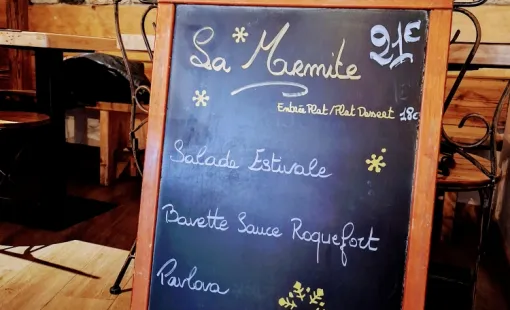 La Marmite 21€
Entrée Plat / Plat Dessert 18€
Salade Estivale
Bavette Sauce Roquefort
Pavlova